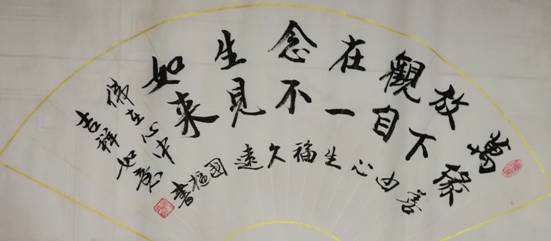 萬緣
放下
觀自
在一
念不
生見
如来
善由心生福久遠
佛在心中
吉祥如意
國
書